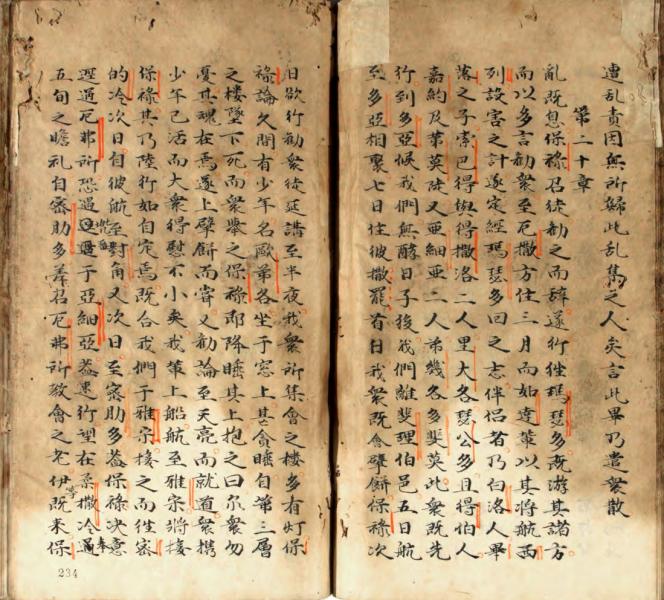 遭乱責因無所歸此乱雋之人矣言此畢乃遣衆散
第二十章
亂既息保祿召徒勸之而辞遂行徃瑪瑟多既游其諸方
而以多言勸衆至厄撒方住三月而如達輩以其将航西
列設害之計遂定經瑪瑟多回之志伴侣者乃白洛人畢
洛之子索巴得與得撒洛二人里大各瑟公多且得伯人
嘉約及第莫陡又亜細亜二人弟幾各多斐莫此衆既先
行到多亞候我們無酵日子後我們離斐理伯邑五日航
至多亞相聚七日住彼撒罷首日我衆既會擘餅保祿次
日欲行勸衆徒延講至半夜我衆所集會之楼多有灯保
祿論久間有少年名歐弟各坐于窓上甚貪睡自第三層
之樓墜下死而衆舉之保祿即降睡其上抱之曰尒衆勿
憂其魂在焉遂上擘餅而嘗又勸論至天亮而就道衆携
少年已活而大衆得慰不小矣我輩上船航至雅宗將接
保祿其乃陸行如自定焉既合我們于雅宗接之而徃宻
的冷次日自彼航至對角又次日至宻肋多葢保祿决意
逕過厄弗所恐過此番遲于亞細亞葢速行望在柔撒冷過
五旬之瞻礼自宻肋多差召厄弗所教會之老伊等既来保
234